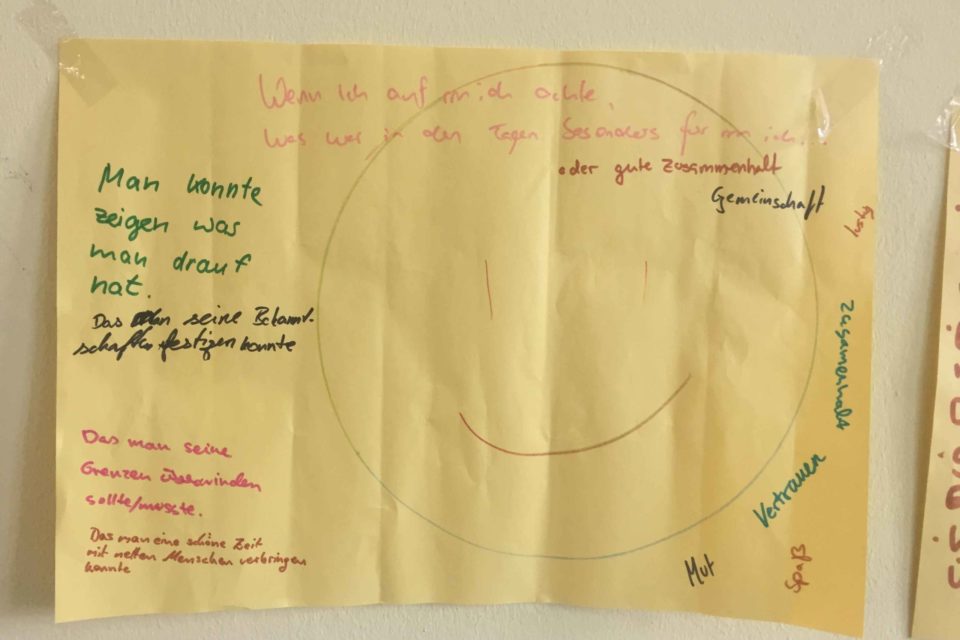 Wenn Ich auf mich achte,
Was war in den Tagen besonders für mich...
oder gute Zusammenhalt
Gemeinschaft
Man konnte
zeigen was
man drauf
hat.
Das man seine Bekannt-
schaften festigen konnte
Zusamenhalt
Das man seine
Grenzen überwinden
sollte/musste.
Vertrauen
Das man eine schöne Zeit
mit netten Menschen verbringen
konnte
Mut
Spaß